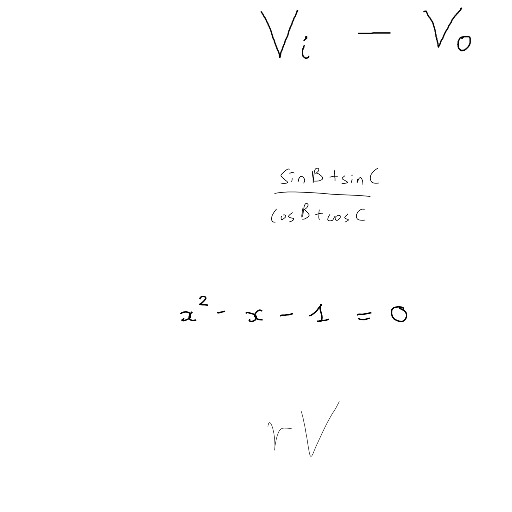 V_i - V_o
\frac{\sin B + \sin C}{\cos B + \cos C}
x^2 - x - 1 = 0
rV